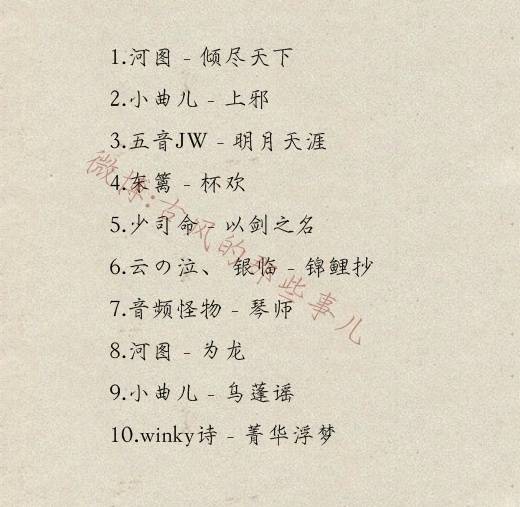 1.河图 - 倾尽天下
2.小曲儿 - 上邪
3.五音JW - 明月天涯
4.东篱 - 杯欢
5.少司命 - 以剑之名
6.云の泣、 银临 - 锦鲤抄
7.音频怪物 - 琴师
8.河图 - 为龙
9.小曲儿 - 乌蓬谣
10.winky诗 - 菁华浮梦
微博:古风的那些事儿